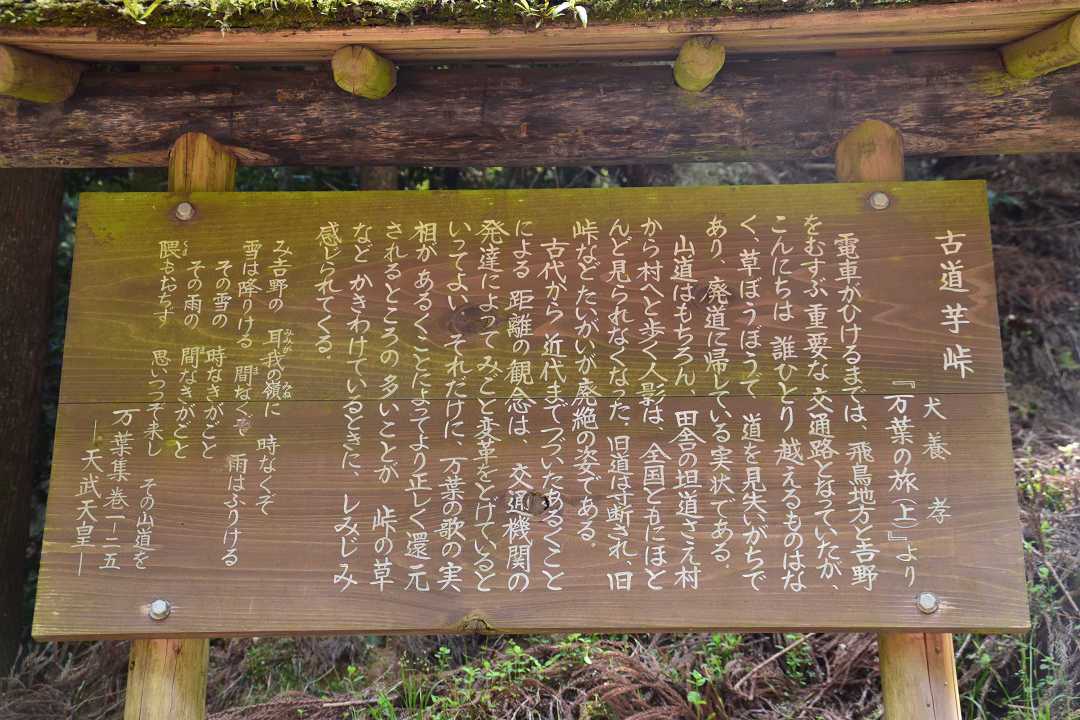 古道芋峠
犬養 孝
『万葉の旅(上)』より
電車がひけるまでは、飛鳥地方と吉野
をむすぶ重要な交通路となっていたが、
こんにちは 誰ひとり 越えるものはな
く、草ぼうぼうで、道を見失いがちで
あり、廃道に帰している実状である。
山道はもちろん、田舎の坦道さえ村
から村へと歩く人影は、全国ともにほと
んど見られなくなった。旧道は寸断され、旧
峠などたいがいが廃絶の姿である。
古代から 近代までつづいたあるくこと
による 距離の観念は、交通機関の
発達によって みごと変革をとげていると
いってよい。それだけに、万葉の歌の実
相が あるくことによってより正しく還元
されるところの多いことが 峠の草
など かきわけているときに、しみじみ
感じられてくる。
み吉野の 耳我の嶺に 時なくぞ
みみが みね
雪は降りける 間なくぞ 雨はふりける
ま
その雪の 時なきがごと
その雨の 間なきがごと
ま
隈もおちず 思いつつぞ来し
くま
その山道を
万葉集巻一-二五
—天武天皇—